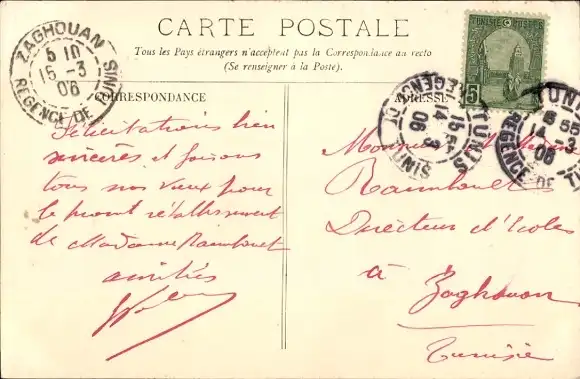 CARTE POSTALE
Tous les Pays étrangers n'acceptent pas la Correspondance au recto
(Se renseigner à la Poste).
ZAGHOUAN
5 10
15 -3
06
REGENCE DE TUNIS
TUNISIE POSTES
5
CORRESPONDANCE
Félicitations bien
sincères et faisons
tous nos vœux pour
le prompt rétablissement
de Madame Rambouet
amitiés
ADRESSE
TUNIS
14 -3
06
REGENCE DE TUNIS
TUNIS
14 -3
06
REGENCE DE TU
Monsieur
Rambouet
Directeur d'écoles
à
Zaghouan
Tunisie